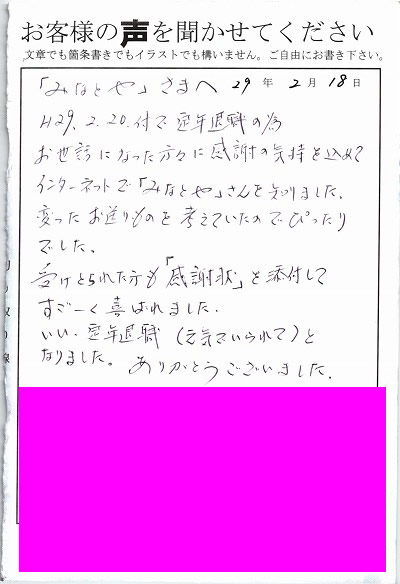 お客様の声を聞かせてください
文章でも箇条書きでもイラストでも構いません。ご自由にお書き下さい。
「みなとや」さまへ 29年 2月 18日
H29.2.20.付で定年退職の為
お世話になった方々に感謝の気持を込めて
インターネットで「みなとや」さんを知りました.
変ったお送りものを考えていたのでぴったり
でした.
受けとられた方も「感謝状」を添付して
すご〜く喜ばれました.
いい.定年退職(元気でいられて)と
なりました。ありがとうございました.